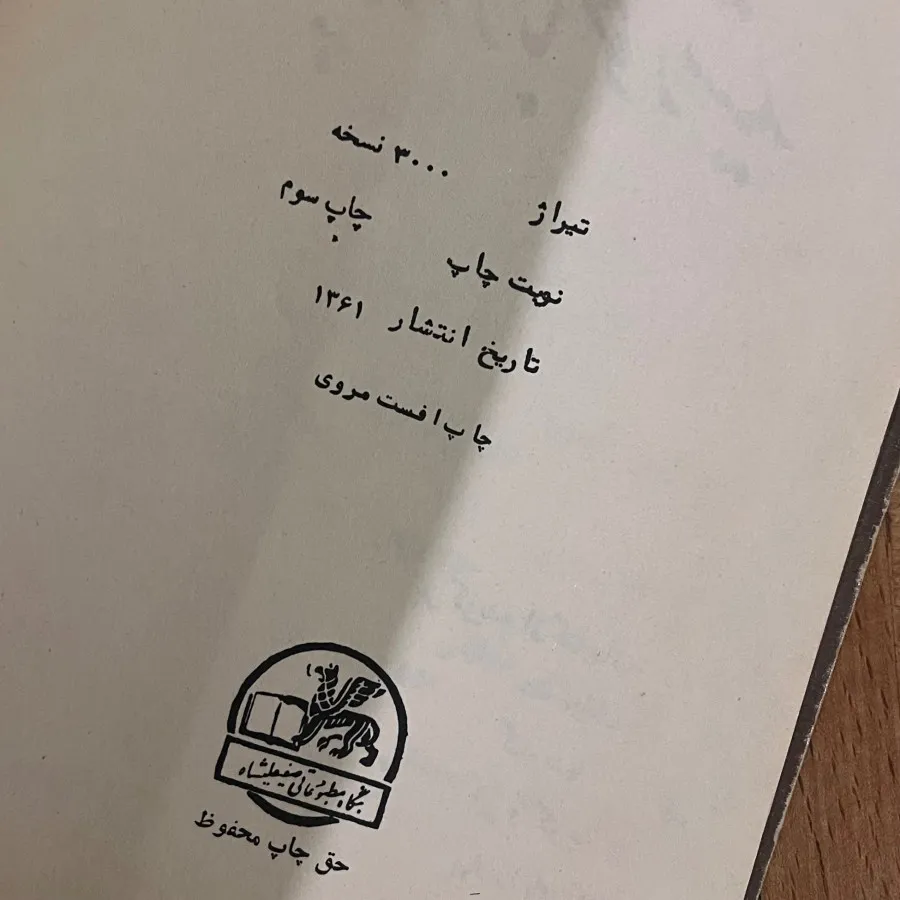 تیراژ ۳۰۰۰ نسخه
نوبت چاپ چاپ سوم
تاریخ انتشار ۱۳۶۱
چاپ افست مروی
بنگاه مطبوعاتی صفیعلیشاه
حق چاپ محفوظ